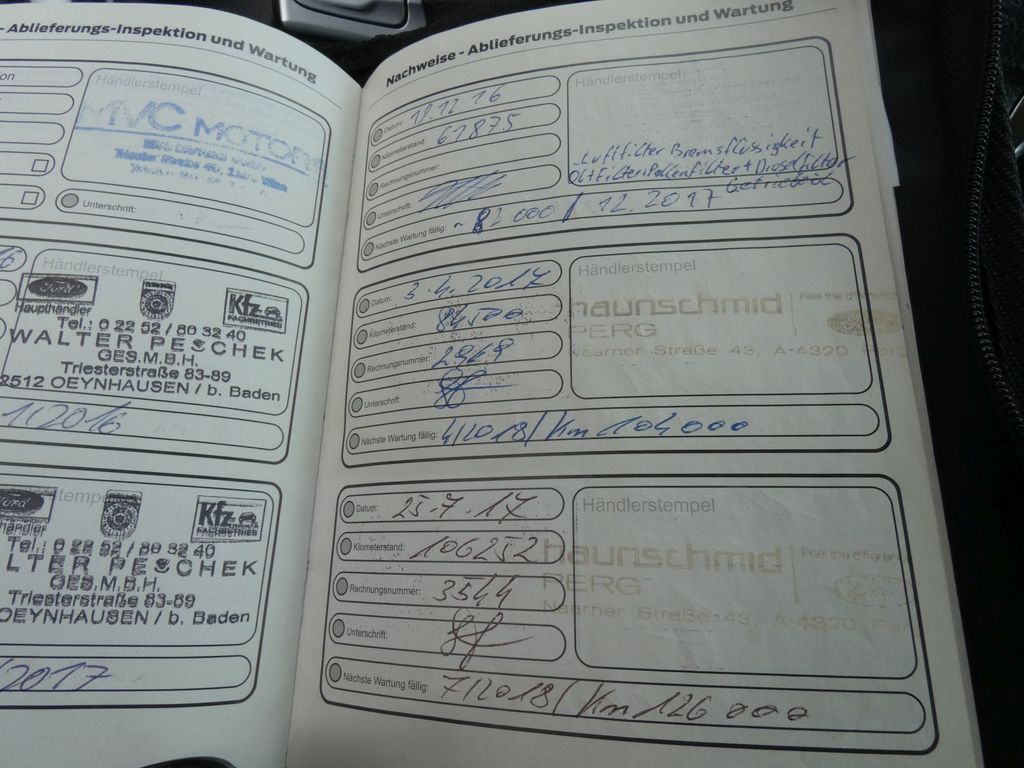 - Ablieferungs-Inspektion und Wartung
Händlerstempel
MVC MOTORS
Unterschrift:
Händlerstempel
Ford
Haupthändler
Kfz
FACHBETRIEB
Tel.: 0 22 52 / 80 32 40
WALTER PESCHEK
GES.M.B.H.
Triesterstraße 83-89
2512 OEYNHAUSEN / b. Baden
1/2016
Kfz
Tel.: 0 22 52 / 80 32 40
LTER PESCHEK
GES.M.B.H.
Triesterstraße 83-89
OEYNHAUSEN / b. Baden
/2017
Nachweise - Ablieferungs-Inspektion und Wartung
Datum: 19.12.16
Kilometerstand: 61875
Rechnungsnummer:
Unterschrift:
Nächste Wartung fällig: ~ 82000 / 12.2017
Händlerstempel
- Luftfilter Bremsflüssigkeit
Öl + Filter Pollenfilter + Dieselfilter
Datum: 3.4.2017
Kilometerstand: 84500
Rechnungsnummer: 2969
Unterschrift:
Nächste Wartung fällig: 4/2018/ Km 104000
Händlerstempel
haunschmid
PERG
Naarner Straße 43, A-4320 Perg
Datum: 25-7-17
Kilometerstand: 106252
Rechnungsnummer: 3544
Unterschrift:
Nächste Wartung fällig: 7/2018/ Km 126000
Händlerstempel
haunschmid
PERG
Naarner Straße 43, A-4320 Per